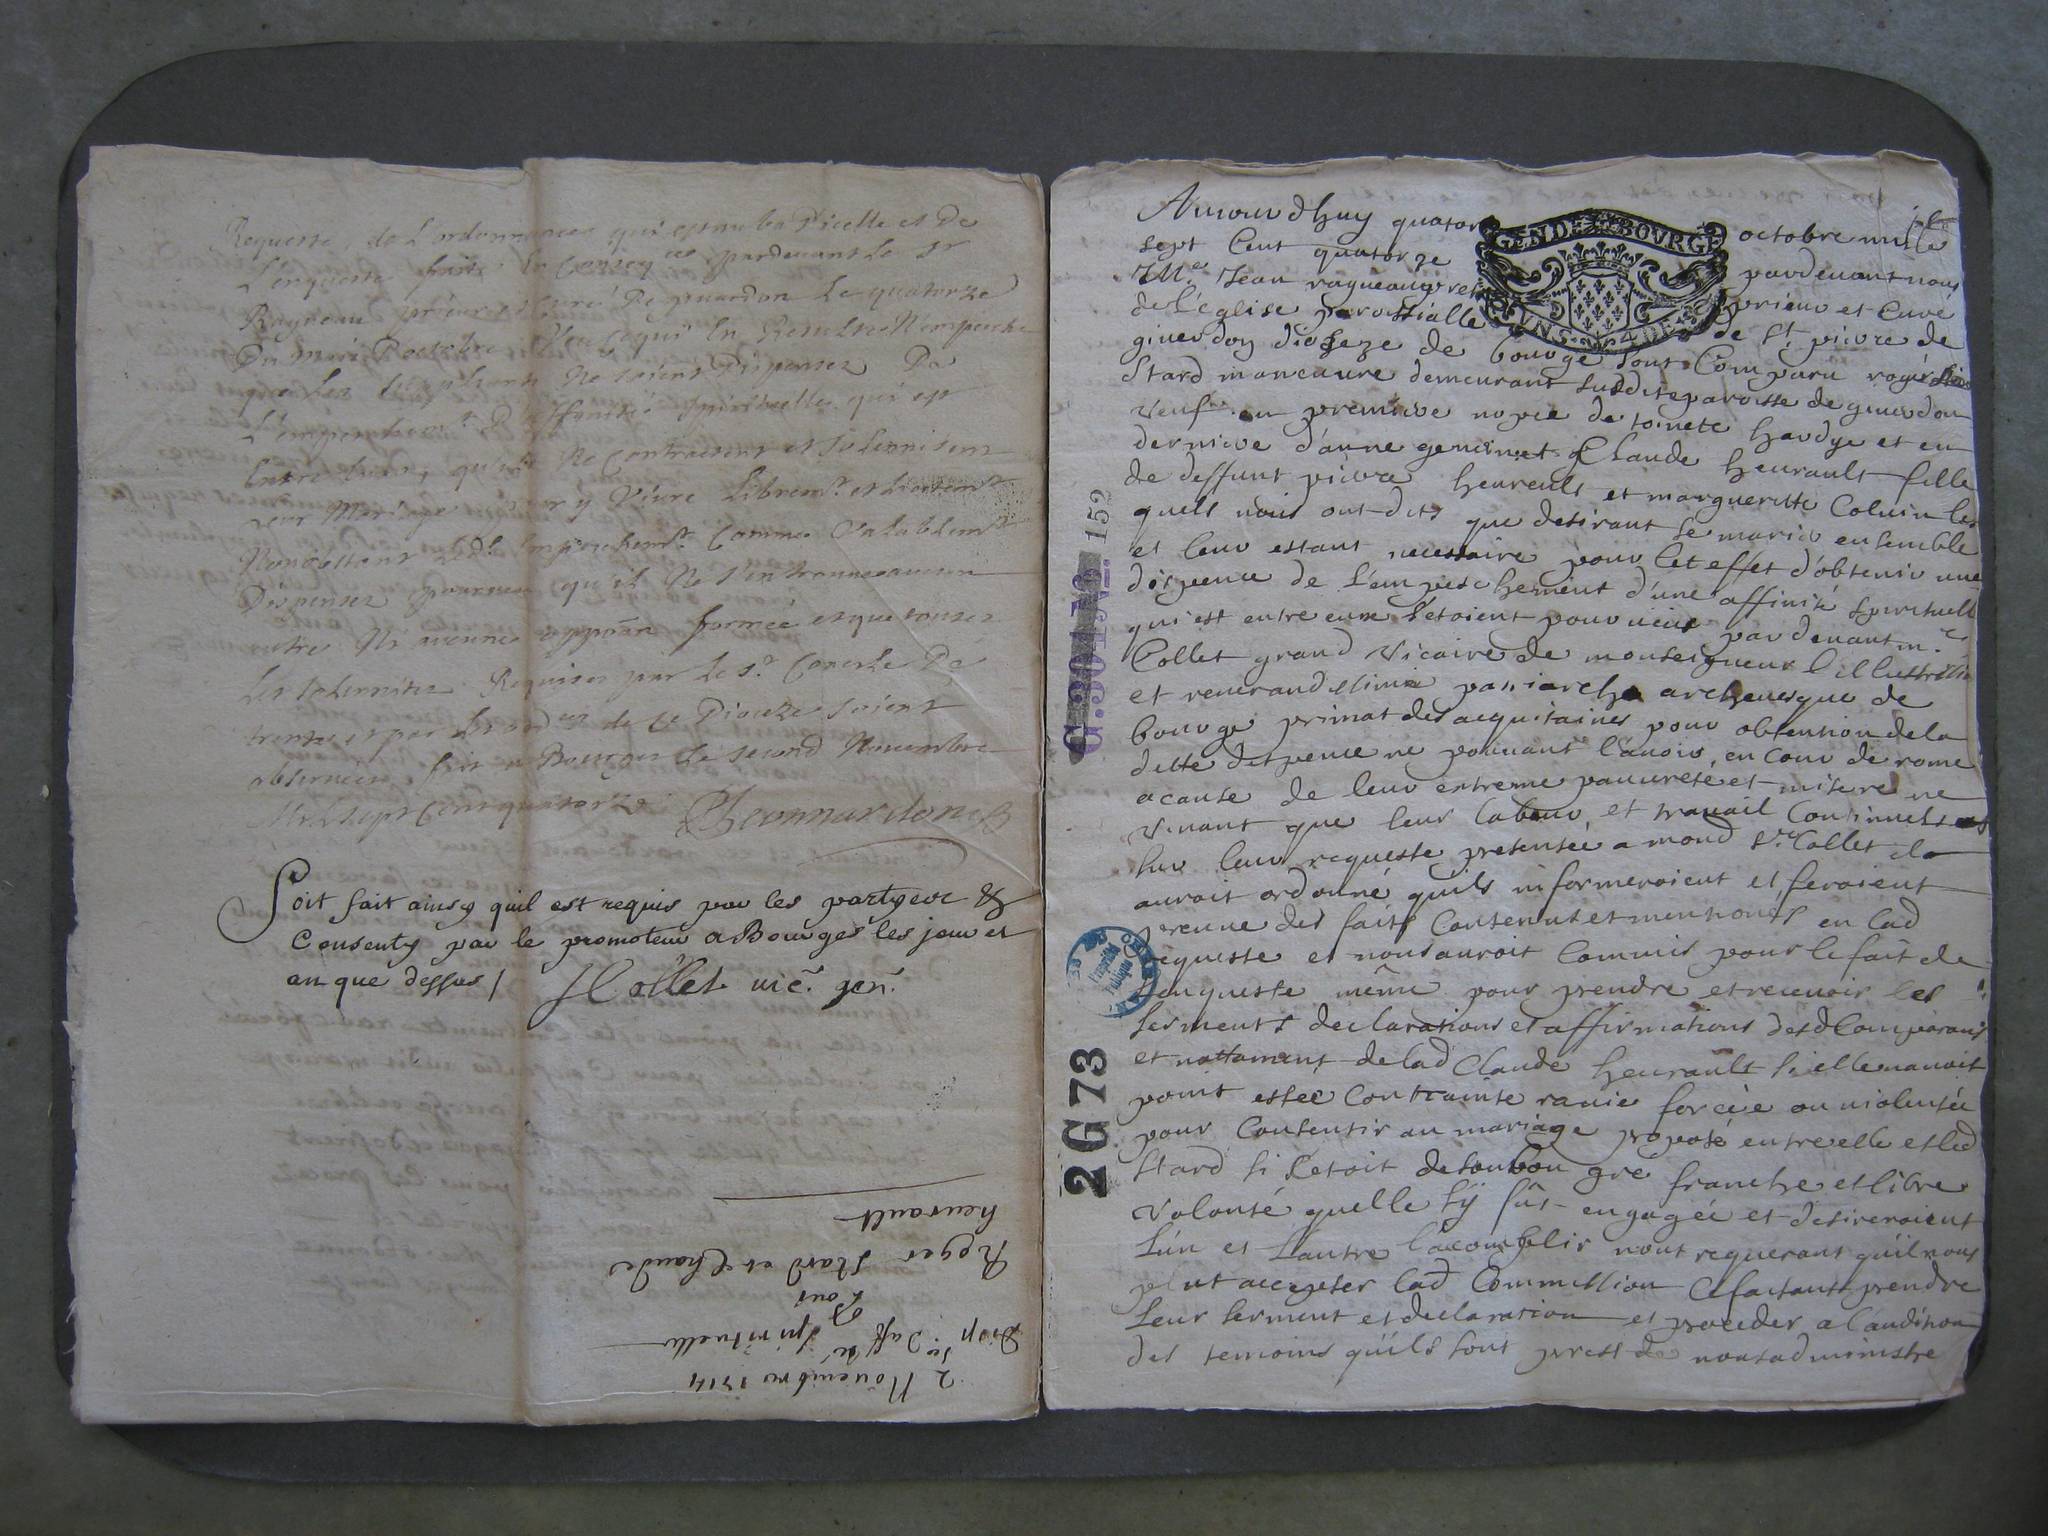 Requeste, de L'ordonnance qui est au bas d'icelle et De
L'enqueste faitte En Conseq.ce pardevant Le Sr
Ragueau prieur et Curé De Givardon Le quatorze
Du mois D'octobre Veu ce qui En Resulte N'empesche
que Les supliants Ne soient Dispensez Da
L'empeschemt D'affinité Spirituelle qui est
Entre Eux, qu'ils Ne Contractent et Solennisent
Leur Mariage pour y Vivre Libremt et Licitemt
Nonobstant Led. Empeschemt Comme Valablemt
Dispensez pourveu qu'il Ne s'en trouve aucun
autre Ni aucune oppoōn formée et que toutes
Les Solennitez Requises par Le St Concile De
trente et par Les ord.ces de Ce Dioceze Soient
observées, fait a Bourges Le second Novembre
Mil Sept Cent quatorze
Soit fait ainsy quil est requis par les partyes &
Consenty par le promoteur a Bourges les jour et
an que dessus /
JCollet vic. gen.
2 Novembre 1714
Disp. d'aff.té Spirituelle
pour
Roger Stard et Claude
heurault
GEN DE BOVRGE
G. 304 No. 152
2G73
Aujourdhuy quator octobre mille
sept Cent quatorze pardevant nous
Me Jean ragueau pre prieur et Curé
de l'église paroissialle de St pierre de
giverdon diozeze de bourge sont Comparu roger
Stard manœuvre demeurant susdite paroisse de giverdon
veuf en premiere nopce de toinete hardye et en
derniere d'anne et Claude heurault fille
de deffunt pierre heurault et margueritte Coluin les
quels nous ont dits que desirant se marier ensemble
et leur estant necessaire pour Cet effet d'obtenir une
dispence de l'empeschement d'une affinité spirituell
qui est entre eux setoient pourvües pardevant m.r
Collet grand Vicaire de monseigneur l'illustrissi
et reverandissime patriarche archevesque de
bourge primat des acquitaines pour obtention de la
ditte dispence ne pouvant l'avoir en cour de rome
a cause de leur extreme pauvreté et misere ne
vivant que leur labour et travail Continuels
sur leur requeste presentée a mond Sr Collet il
auroit ordonné quils informeroient et feroient
preuve des faits Contenus et mentionés en lad
requeste et nous auroit Commis pour le fait de
lenqueste même pour prendre et recevoir les
serments declarations et affirmations desd Comparans
et nottament de lad Claude heurault si elle navoit
point estée Contrainte ravie forcée ou violentée
pour Consentir au mariage proposé entre elle et led
Stard si Cetoit de son bon gre franche et libre
volonté quelle sy fût engagée et desireroient
lun et lautre lacomplir nous requerant quil nous
plut accepter lad Commission Ce faisant prendre
leur serment et declaration et proceder a l'audition
des temoins quils sont prest de nous administre